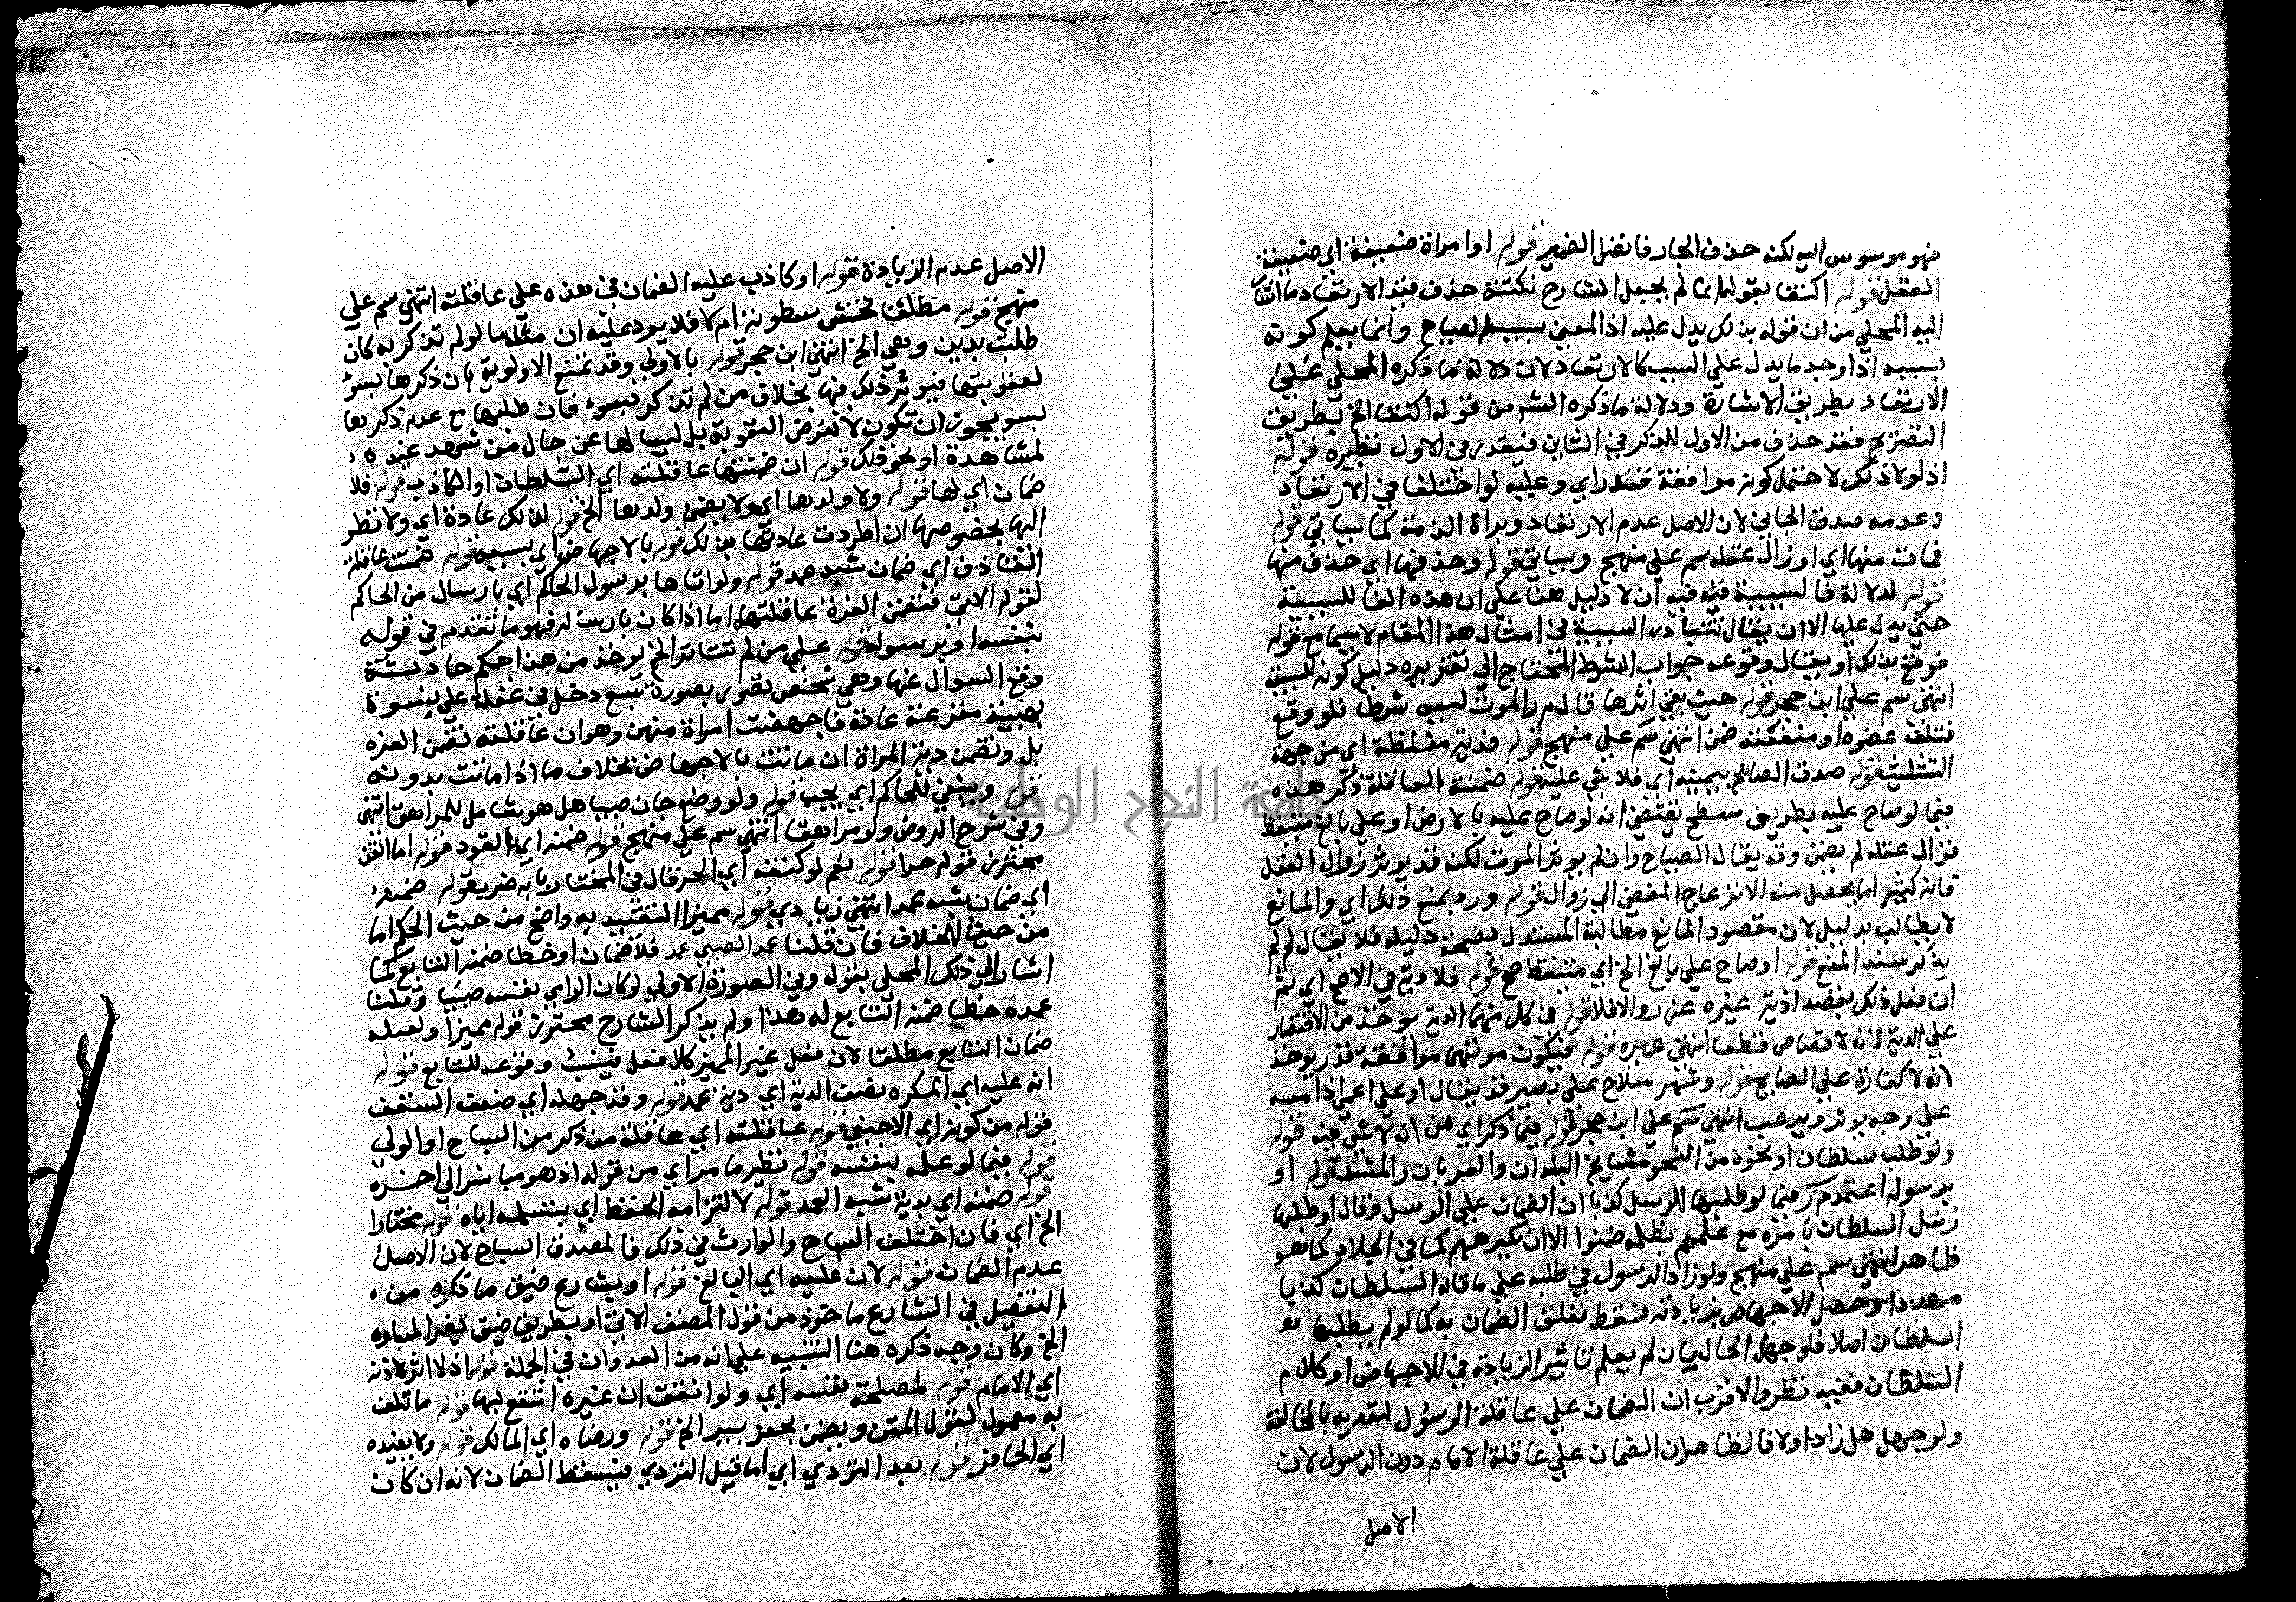 فهو موسوس اليه لكنه حذف الجار فانفصل الضمير قوله او امراة ضعيفة اي ضعيفة
العقل قوله اكتفا بقوله انما لم يجعل الشارح نكتة حذف قيد الارتعاد ما اشار
اليه المحلي من ان قوله بذلك يدل عليه اذ المعني بسبب الصياح وانما يعلم كونه
بسببه اذا وجد ما يدل علي السبب كالارتعاد لان دلالة ما ذكره المحلي علي
الارتعاد بطريق الاشارة ودلالة ما ذكره الشر من قوله اكتفا الخ بطريق
التصريح فقد حذف من الاول للذكر في الثاني فيقدر في الاول نظيره قوله
اذ لولا ذلك لاحتمل كونه موافقة قدر اي وعليه لو اختلفا في الارتعاد
وعدمه صدق الجاني لان الاصل عدم الارتعاد وبراة الذمة كما سياتي قوله
فمات منها اي او زال عقله سم علي منهج وسياتي قوله وحذفها اي حذف منها
قوله لدلالة فا السببية فيه ان لا دليل هنا علي ان هذه الفا للسببية
حتي يدل عليها الا ان يقال تتبادر السببية في امثال هذا المقام لاسيما مع قوله
فوقع بذلك او يقال وقوعه جواب الشرط المحتاج الي تقديره دليل كونه للسببية
انتهي سم علي ابن حجر قوله حيث بقي اثرها قال م ر الموت ليس شرطا فلو وقع
فتلف عضوه او منفعته ضمن انتهي سم علي منهج قوله فدية مغلظة اي من جهة
التثليث قوله صدق الصائح بيمينه اي فلا شي عليه قوله ضمنته العاقلة ذكر هذه
فيما لو صاح عليه بطريق سطح يقتضي انه لو صاح عليه بالارض او علي بالغ متيقظ
فزال عقله لم يضمن وقد يقال الصياح وان لم يوثر الموت لكن قد يوثر زوال العقل
فانه كثيرا ما يحصل منه الانزعاج المفضي الي زواله قوله ورد بمنع ذلك اي والمانع
لا يطالب بدليل لان مقصود المانع مطالبة المستدل بصحة دليله فلا يقال لم لم
يذكر سند المنع قوله او صاح علي بالغ الخ اي متيقظ صح قوله فلا دية في الاصح اي ثم
ان فعل ذلك بقصد اذية غيره عزر والا فلا قوله في كل منهما الدية يوخذ من الاقتصار
علي الدية انه لا قصاص قطعا انتهي عميره قوله فيكون موتهما موافقة قدر يوخذ
انه لا كفارة علي الصايح قوله وشهر سلاح علي بصير قد يقال او علي اعمي اذا مسه
علي وجه يوثر ويرعب انتهي سم علي ابن حجر قوله فيما ذكر اي من انه لا شي فيه قوله
ولو طلب سلطان او نحوه من النحو مشايخ البلدان والعربان والمشد قوله او
برسوله اعتمد م ر فيما لو طلبها الرسل كذبا ان الضمان علي الرسل وقال او طلبها
رسل السلطان بامره مع علمهم بظلمه ضمنوا الا ان يكرههم كما في الجلاد كما هو
ظاهر انتهي سم علي منهج ولو زاد الرسول في طلبه علي ما قاله السلطان كذبا
مهددا وحصل الاجهاض بزيادته فقط تعلق الضمان به كما لو لم يطلبها هو
السلطان اصلا فلو جهل الحال بان لم يعلم تاثير الزيادة في الاجهاض او كلام
السلطان ففيه نظر والاقرب ان الضمان علي عاقلة الرسول لتعديه بالمخالفة
ولو جهل هل زاد اولا فالظاهر ان الضمان علي عاقلة الامام دون الرسول لان
الاصل
الاصل عدم الزيادة قوله او كاذب عليه الضمان في هذه علي عاقلته انتهي سم علي
منهج قوله مطلقا لخشي سطوته ام لا فلا يرد عليه ان مثله ما لو لم تذكر به كان
طلبت بدين وهي الخ انتهي ابن حجر قوله بالاولي وقد تمنع الاولوية بان ذكرها بسوء
لعقوبتها فيوثر ذلك فيها بخلاف من لم تذكر بسوء فان طلبها مع عدم ذكرها
بسو يجوز ان تكون لا لغرض العقوبة بل ليسالها عن حال من شهد عنده
لمشاهدة او نحو ذلك قوله ان ضمنتها عاقلته اي السلطان او الكاذب قوله فلا
ضمان اي لها قوله ولا ولدها اي ولا يضمن ولدها الخ قوله لذلك عادة اي ولا نظر
اليها بخصوصها ان اطردت عادتها بذلك قوله بالاجهاض اي بسببه قوله ضمنت عاقلة
القاذف اي ضمان شبه عمد قوله ولو اتاها برسول الحاكم اي بارسال من الحاكم
لقوله الاتي فتضمن الغرة عاقلتهما اما اذا كان بارساله فهو ما تقدم في قوله
بنفسه او برسوله قوله علي من لم تتاثر الخ يوخذ من هذا حكم حادثة
وقع السوال عنها وهي شخص تصور بصورة سبع ودخل في غفلة علي نسوة
بهيئة مفزعة عادة فاجهضت امراة منهن وهو ان عاقلته تضمن الغره
بل وتضمن دية المراة ان ماتت بالاجهاض بخلاف ما اذا ماتت بدونه
قوله وينبغي للحاكم اي يجب قوله ولو وضع جان صبيا هل هو شامل للمراهق انتهي
وفي شرح الروض ولو مراهقا انتهي سم علي منهج قوله ضمنه اي القود قوله اما القن
محترز قوله حرا قوله نعم لو كتفه اي الحر قال في المختار بابه ضرب قوله ضمنه
اي ضمان شبه عمد انتهي زيادي قوله مميزا التقييد به واضح من حيث الحكم اما
من حيث الخلاف فان قلنا عمد الصبي عمد فلا ضمان او خطا ضمنه التابع كما
اشار الي ذلك المحلي بقوله وفي الصورة الاولي لو كان الرامي بنفسه صبيا وقلنا
عمده خطا ضمنه التابع له هذا ولم يذكر الشارح محترز قوله مميزا ولعله
ضمان التابع مطلقا لان فعل غير المميز كلا فعل فينسب وقوعه للتابع قوله
انه عليه اي المكره نصف الدية اي دية عمد قوله وقد جهله اي ضعف السقف
قوله من كونه اي الاجنبي قوله عاقلته اي عاقلة من ذكر من السباح او الولي
قوله فيما لو علمه بنفسه قوله نظير ما مر اي من قوله اذ هو مباشر الي اخره
قوله ضمنه اي بدية شبه العمد قوله لالتزامه الحفظ اي بتسلمه اياه قوله مختارا
الخ اي فان اختلف السباح والوارث في ذلك فالمصدق السباح لان الاصل
عدم الضمان قوله لان عليه اي البالغ قوله او بشارع ضيق ما ذكره من
التفصيل في الشارع ماخوذ من قول المصنف الاتي او بطريق ضيق يضر المارة
الخ وكان وجه ذكره هنا التنبيه علي انه من العدوان في الجملة قوله اذ لا اثر لاذنه
اي الامام قوله لمصلحة نفسه اي ولو اتفق ان غيره انتفع بها قوله ما تلف
به معمول لقول المتن ويضمن بحفر بير الخ قوله ورضاه اي المالك قوله ولا يفيده
اي الحافر قوله بعد التردي اي اما قبل التردي فيسقط الضمان لانه ان كان